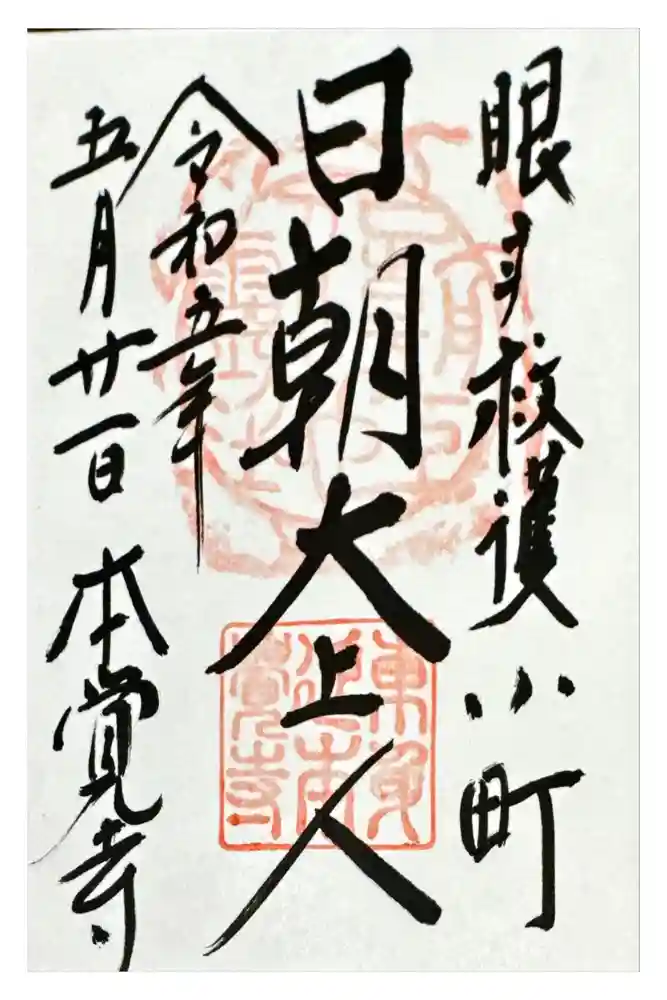 眼 救護 小町
日朝大上人
令和五年
五月廿一日 本覚寺
東身
延本
覺寺